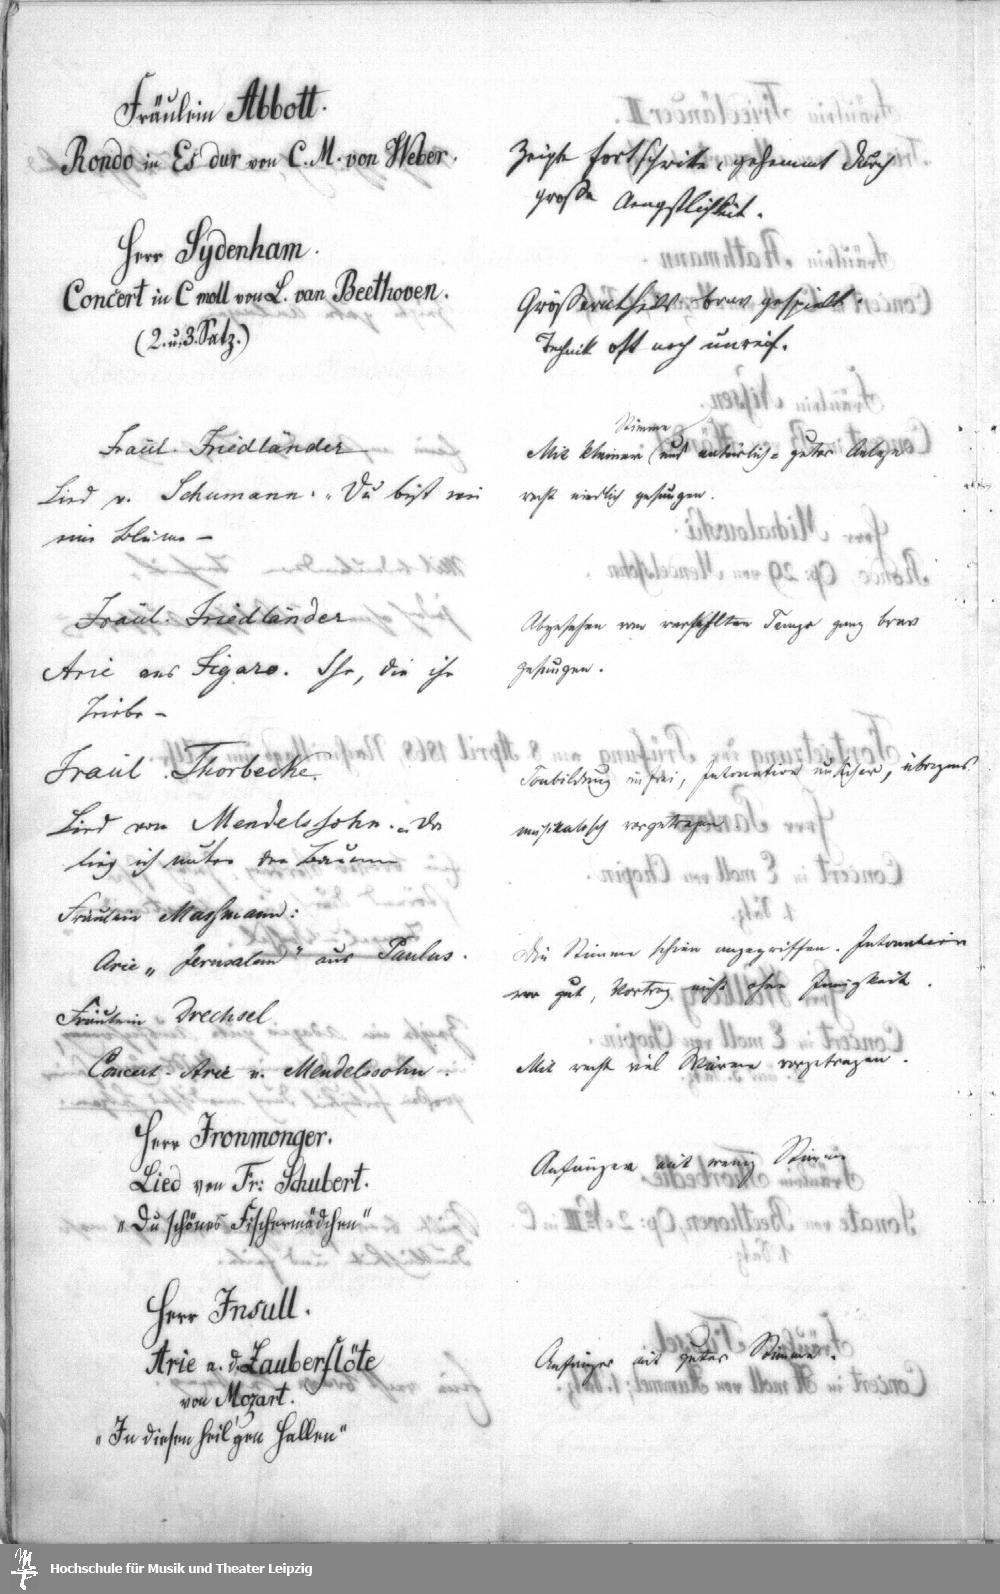 Fräulein Abbott.
Rondo in Es dur von C. M. von Weber.
Zeigte Fortschritte, gehemmt durch
große Aengstlichkeit.
Herr Sydenham.
Concert in C moll von L. van Beethoven.
(2. u. 3. Satz.)
Größerentheils brav gespielt.
Technik oft noch unreif.
Fräul. Friedländer
Lied v. Schumann. „Du bist wie
eine Blume –
Stimme
Mit kleiner (und natürlich = guter Anlage
recht niedlich gesungen.
Fräul. Friedländer
Arie aus Figaro. Ihr, die ihr
Triebe –
Abgesehen vom verfehlten Tempo ganz brav
gesungen.
Fräul. Thorbecke.
Lied von Mendelssohn. „Da
lieg ich unter den Bäumen
Tonbildung unfrei, Intonation unsicher, übrigens
musikalisch vorgetragen
Fräulein Massmann:
Arie „Jerusalem" aus Paulus.
Die Stimme schien angegriffen. Intonation
war gut, Vortrag nicht ohne Innigkeit.
Fräulein Drechsel
Concert-Arie v. Mendelssohn.
Mit recht viel Wärme vorgetragen.
Herr Ironmonger.
Lied von Fr: Schubert.
„Du schönes Fischermädchen"
Anfänger mit wenig Stimme
Herr Insull.
Arie a. d. Zauberflöte
von Mozart.
„In diesen heil'gen Hallen"
Anfänger mit guter Stimme.
Hochschule für Musik und Theater Leipzig